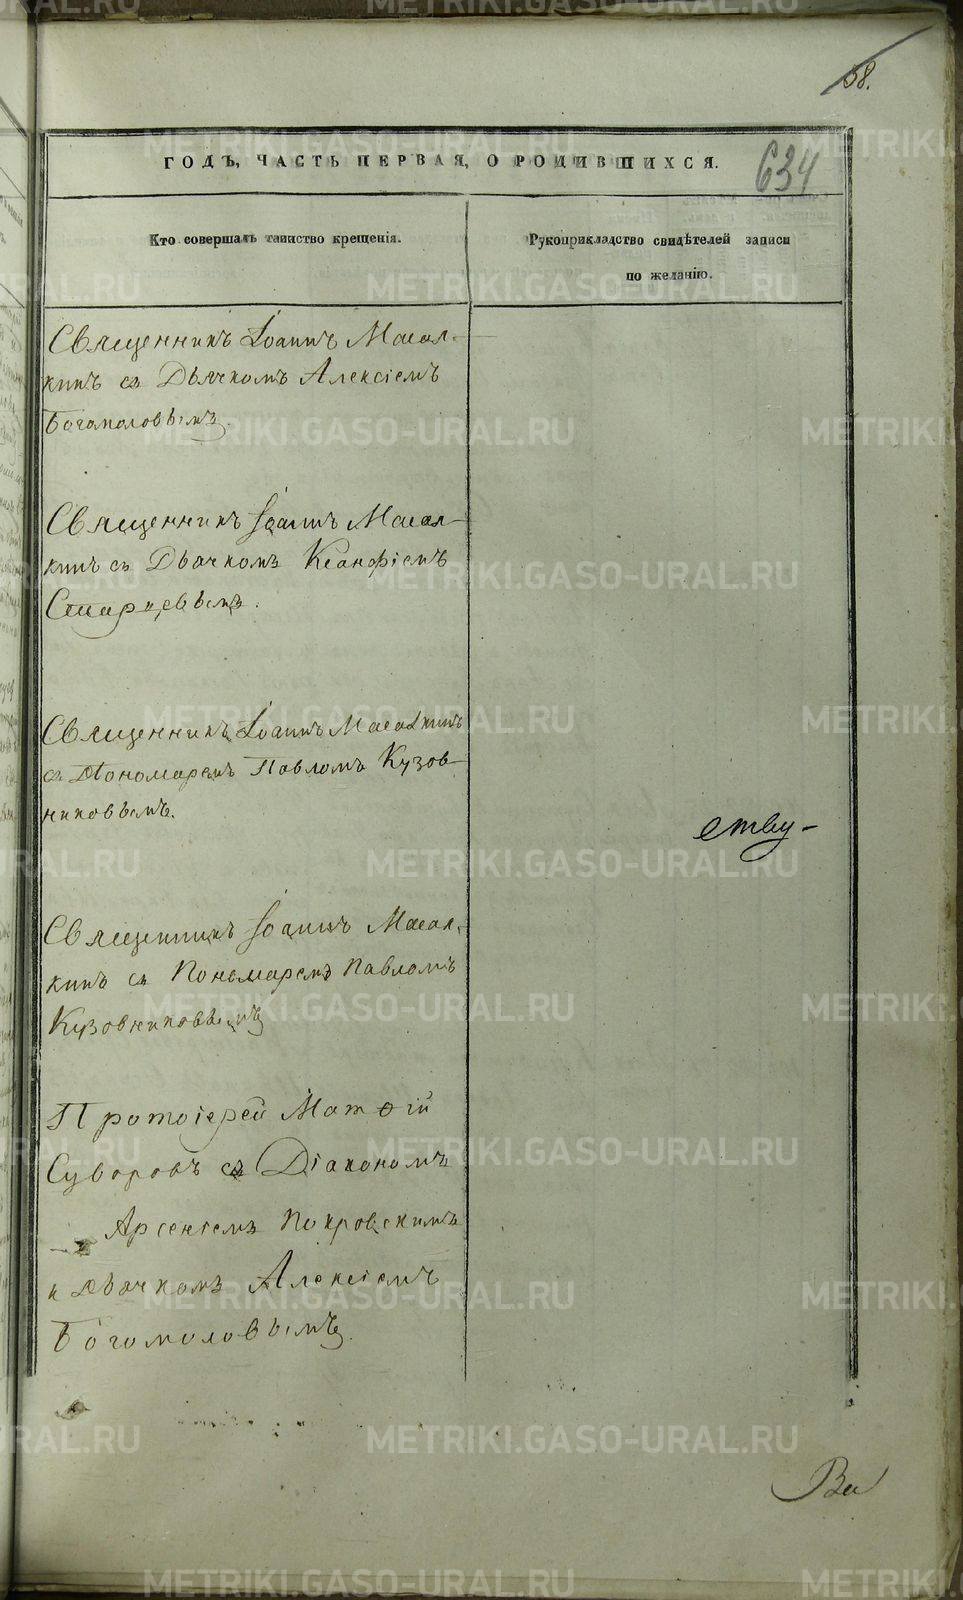 58.
ГОДЪ, ЧАСТЬ ПЕРВАЯ, О РОДИВШИХСЯ.
634
Кто совершалъ таинство крещенія.
Рукоприкладство свидѣтелей записи
по желанію.
Священникъ Іоаннъ Масал-
кинъ съ Дьячкомъ Алексіемъ
Богомоловымъ.
Священникъ Іоаннъ Масал-
кинъ съ Дьячкомъ Ксанфіемъ
Старцевымъ.
Священникъ Іоаннъ Масалкинъ
съ Пономаремъ Павломъ Кузов-
никовымъ.
ству-
Священникъ Іоаннъ Масал-
кинъ съ Пономаремъ Павломъ
Кузовниковымъ
Протоіерей Матѳій
Суворовъ съ Діакономъ
Арсеніемъ Покровскимъ
и Дьячкомъ Алексіемъ
Богомоловымъ.
METRIKI.GASO-URAL.RU